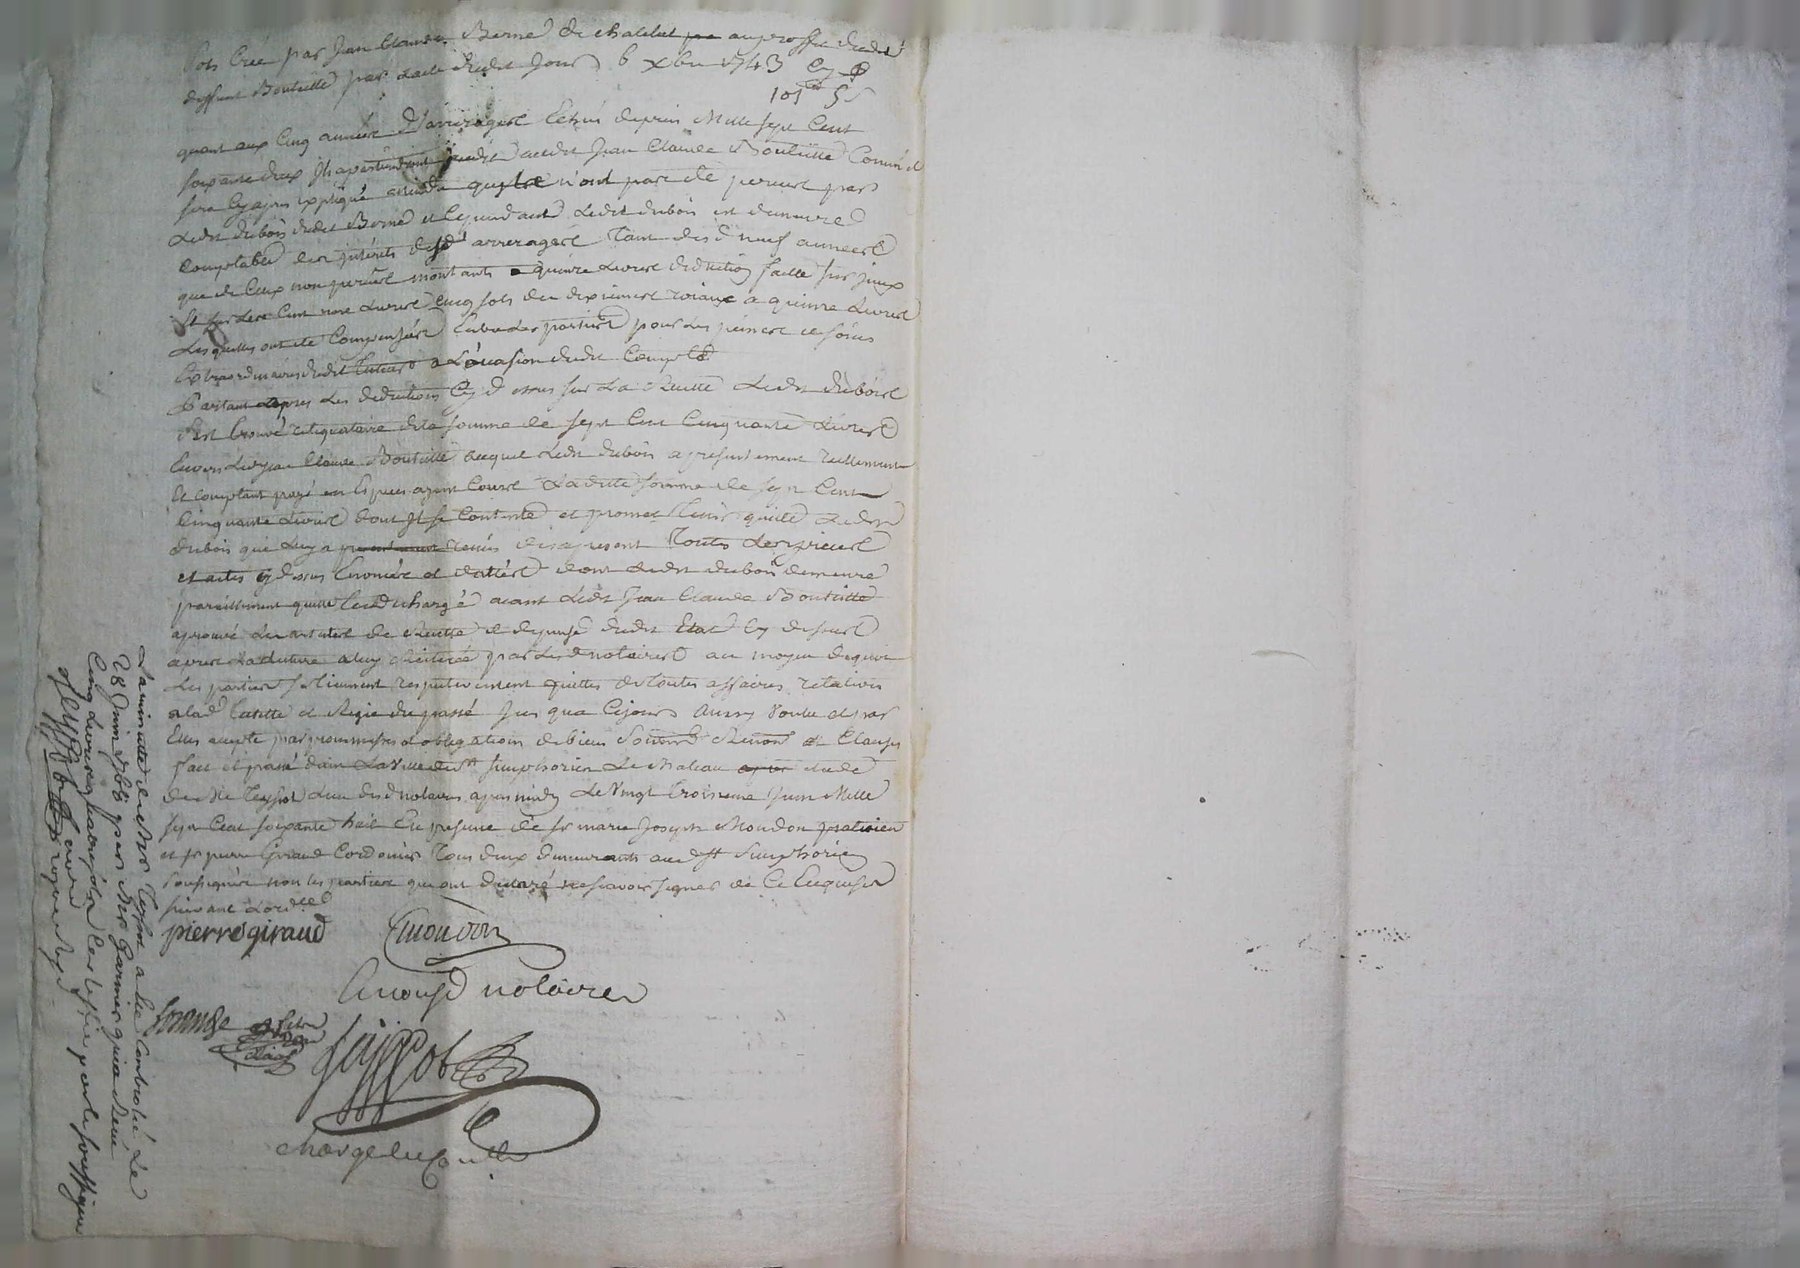 sols créé par Jean Claude Berne de chatelut au proffit dudit
deffunt Bouteille par acte dudit Jour 6 xbre 1743 Cy
101 5s
quant aux Cinq années d'arrerages Echus depuis Mille sept Cent
soixante deux Ils apartiendront audit Jean Claude Bouteille Comme il
sera Cy apres expliqué n'ont pas été perceus par
Ledit dubois dudit Berne et Cependant Ledit dubois est demeuré
Comptable des interets desd arrerages Tant des neuf années
que de Ceux non perceus montants a quinze Livres deduction faitte sur Iceux
Cent onze Livres Cinq sols des dixiemes roiaux a quinze Livres
Lesquelles ont été Compensées Entre Les parties pour Les peines et soins
Extraordinaires dudit tuteur a L'ocasion dudit Compte
Partant apres Les deductions Cy d essus sur La Recette Ledit dubois
s'est trouvé reliquataire de la somme de sept Cent Cinquante Livres
Envers Ledit Jean Claude Bouteille auquel Ledit dubois a presentement reellement
et comptant payé en Especes ayant Cours Laditte somme de sept Cent
Cinquante Livres dont Il se Contente et promet tenir quitte Ledit
dubois qui Luy a remis des apresent Toutes Les pieces
et actes cy dessus Enoncées et dattées dont Ledit dubois demeure
pareillement quitte et dechargé aiant Ledit Jean Claude Bouteille
aprouvé Les articles de Recette et depense dudit Etat Cy dessus
apres La lecture a luy reiterée par Lesd notaires au moyen de quoi
Les parties se tiennent respectivement quittes de toutes affaires relatives
a lad tutelle et Regie du passé Jus qua Ce jour Ainsy Voulu et par
Elles accepté par promesses obligation de biens Soumis Renon et Clauses
fait et passé dans La Ville de st Simphorien Le chateau etude
de Me Teyssot L'un desd notaires apres midy Le Vingt troisieme Juin Mille
sept Cent soixante huit En presence de sr marie Joseph Moudon praticien
et sr pierre Giraud Cordonier Tous deux demeurants aud st Simphorien
soussignés non les parties qui ont declaré ne scavoir signer de Ce Enquises
suivant L'ordce
pierre giraud Moudon
notaire
Teyssot
chargé de la minutte
La minutte de Me Teyssot a été Controlée Le
28 Juin 1768 par Me Garnier qui a Receu
Cinq Livres quatre sols Certiffié par le soussigné